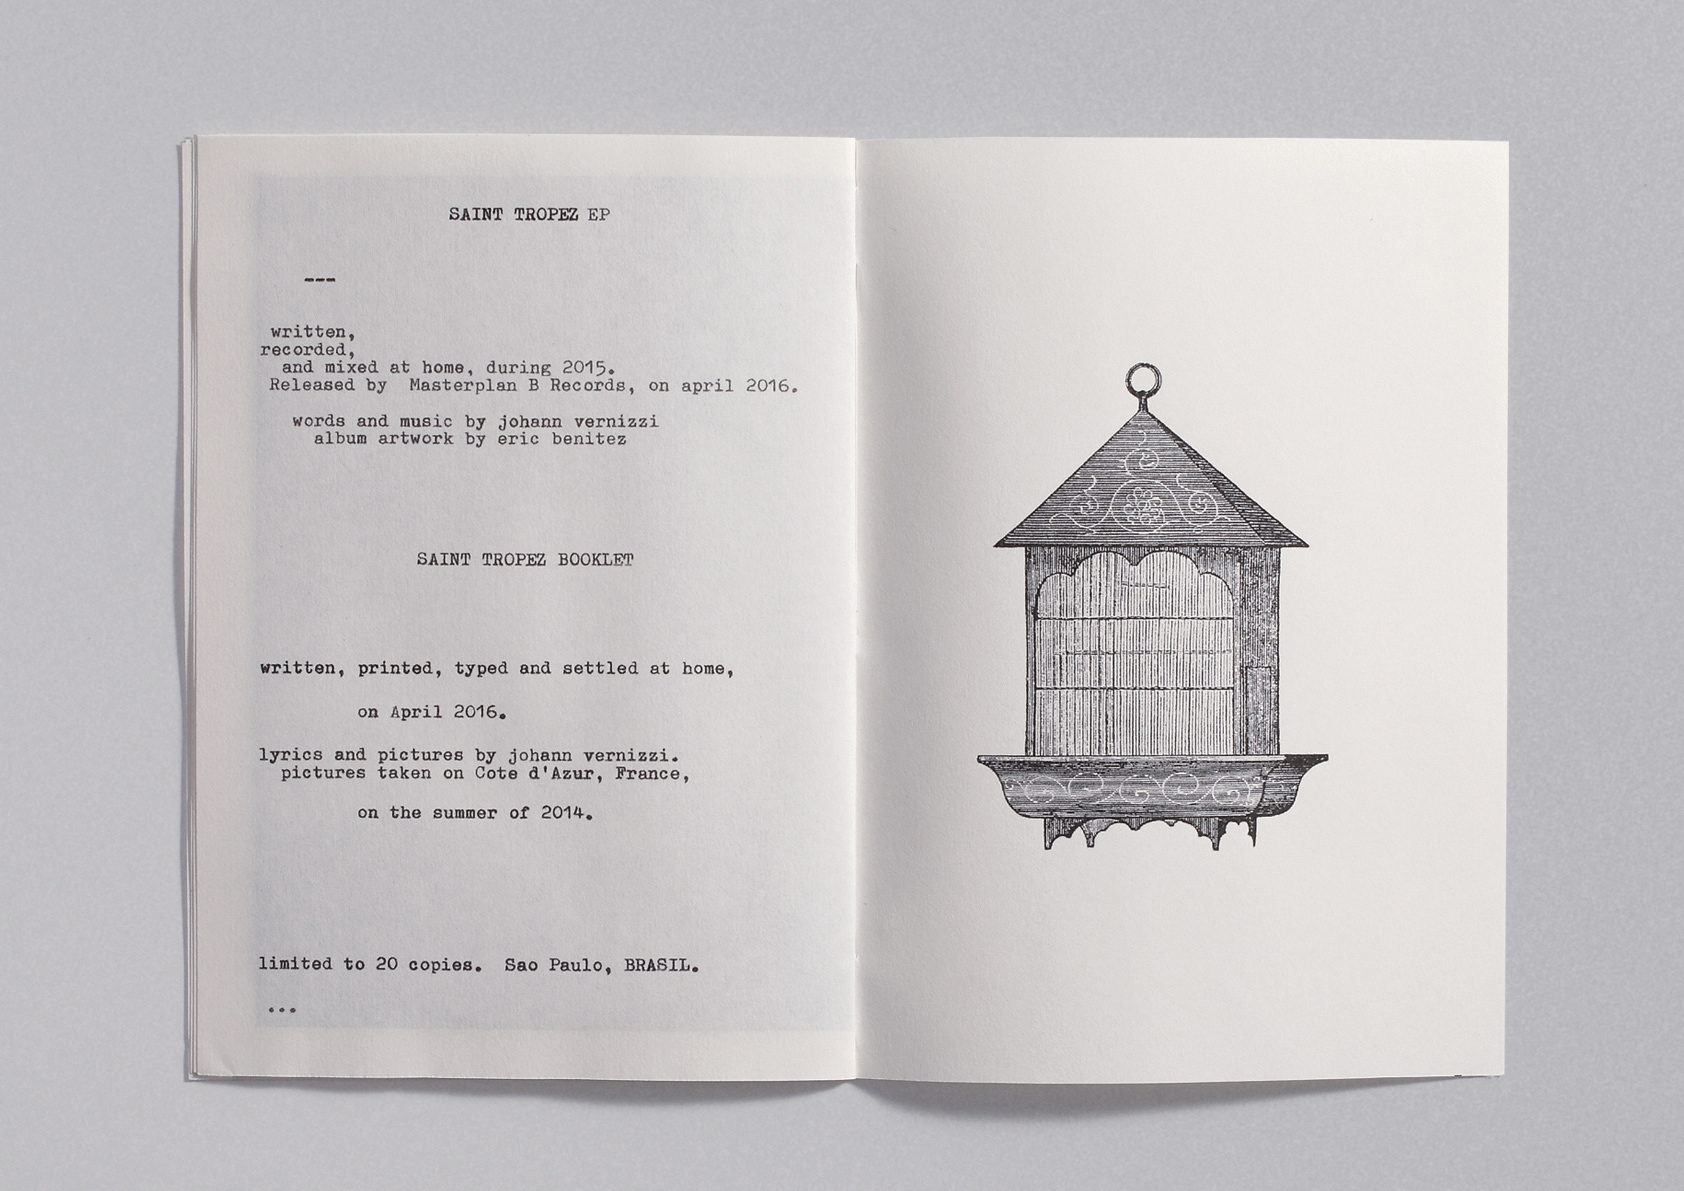 SAINT TROPEZ EP
---
written,
recorded,
and mixed at home, during 2015.
Released by Masterplan B Records, on april 2016.
words and music by johann vernizzi
album artwork by eric benitez
SAINT TROPEZ BOOKLET
written, printed, typed and settled at home,
on April 2016.
lyrics and pictures by johann vernizzi.
pictures taken on Cote d'Azur, France,
on the summer of 2014.
limited to 20 copies. Sao Paulo, BRASIL.
...